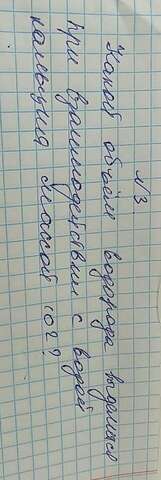 N3.
Какой объём водорода выделился
при взаимодействии с водой
кальция массой 10г?